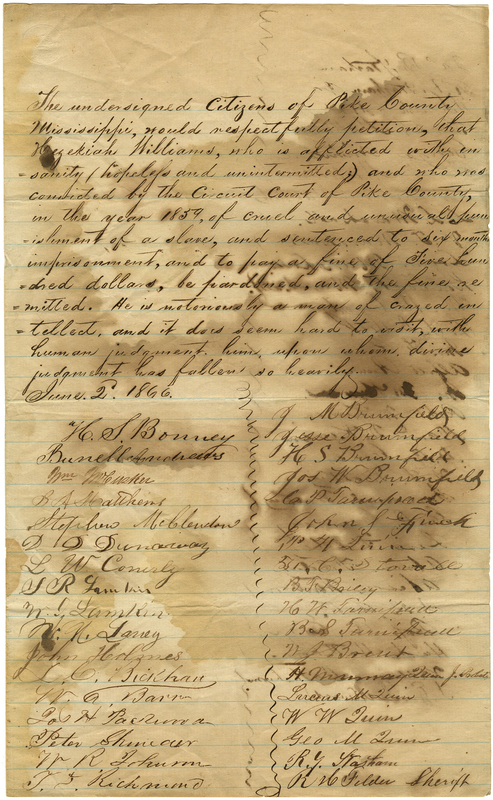 The undersigned Citizens of Pike County
Mississippi, would respectfully petition, that
Hezekiah Williams, who is afflicted with in
=sanity (hopeless and unintermitted;) and who was
convicted by the Circuit Court of Pike County,
in the year 1859, of cruel and unusual pun
=ishment of a slave, and sentenced to six months
imprisonment, and to pay a fine of Five hun
=dred dollars, be pardoned, and the fine re
=mitted. He is notoriously a man of crazed in
=tellect, and it does seem hard to visit, with
human judgment, him, upon whom divine
judgment has fallen so heavily.
June 2d. 1866.
H. S. Bonney
Andrews
Wm
Matthews
Stephen McClendon
Dunaway
L W Conerly
S R Lamkin
Lamkin
John Holmes
Bickham
Peter
W R Johnson
Richmond
J M Brumfield
Jesse Brumfield
H S Brumfield
Jos W Brumfield
John J
Quinn
B S Bailey
H W
B S
W J Brent
H. Murray Quin J. Probate
M Quin
W W Quin
Geo M Quin
R Y
R H Felder Sheriff